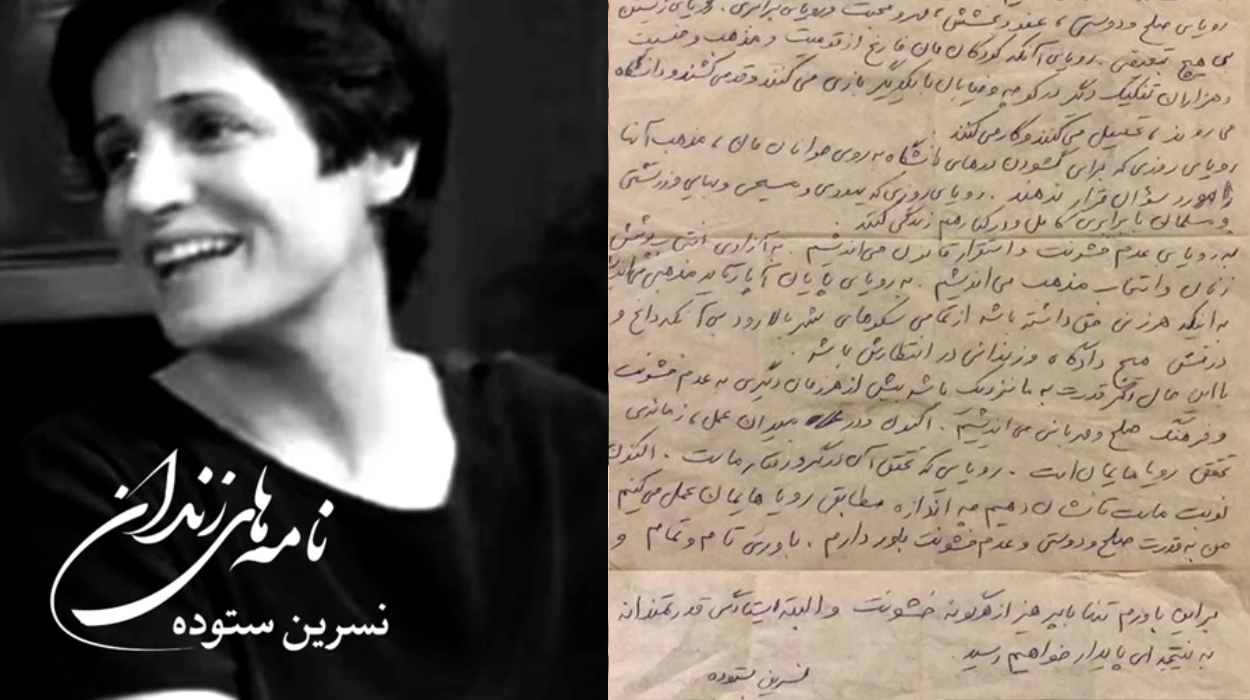 نامه‌های زندان
نسرین ستوده
رویای صلح و دوستی، عفو و بخشش، مهر و محبت و رویای برابری.
بی هیچ تبعیضی. رویای آنکه کودکان‌مان فارغ از قومیت و مذهب و جنسیت
و هزاران تفکیک دگر در کوچه و خیابان با یکدیگر بازی می‌کنند و قد می‌کشند و دانشگاه
می‌روند، تحصیل می‌کنند و کار می‌کنند.
رویای روزی که برای گشودن درهای دانشگاه به روی جوانان‌مان، مذهب آنها
را مورد سؤال قرار ندهند. رویای روزی که یهودی و مسیحی و بهایی و زرتشتی
و مسلمان با برابری کامل و در کنار هم زندگی کنند.
به رویای عدم خشونت و استقرار قانون می‌اندیشیم. به آزادی انتخاب پوشش
زنان و انتخاب مذهب می‌اندیشم. به رویای پایان آپارتاید مذهبی می‌اندیشم
به اینکه هر زنی حق داشته باشد از تمامی سکوهای شهر بالا رود بی آنکه داغ و
درفش هیچ دادگاه و زندانی در انتظارش باشد.
با این حال اگر قدرت به ما نزدیک باشد بیش از هر زمان دیگری به عدم خشونت
و فرهنگ صلح و مهربانی می‌اندیشیم. اکنون در میدان عمل، زمانه‌ی
تحقق رویاهایمان است. رویایی که تحقق آن در گرو رفتار ماست. اکنون
نوبت ماست تا نشان دهیم چه اندازه مطابق رویاهایمان عمل می‌کنیم
من به قدرت صلح و دوستی و عدم خشونت باور دارم. باوری تام و تمام و
بر این باورم تنها با پرهیز از هرگونه خشونت و البته ایستادگی قدرتمندانه
به نتیجه‌ای پایدار خواهیم رسید.
نسرین ستوده